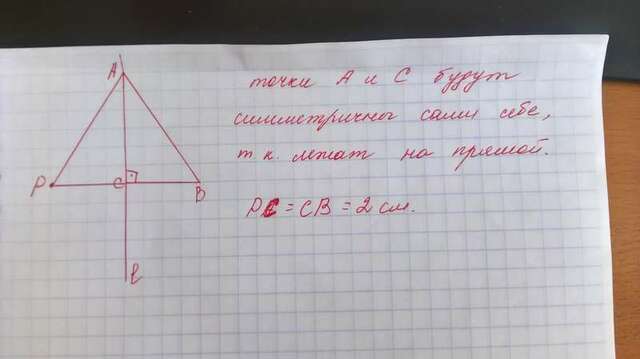 A
P
C
B
l
точки A и C будут
симметричны сами себе,
т к лежат на прямой.
PC = CB = 2 см.